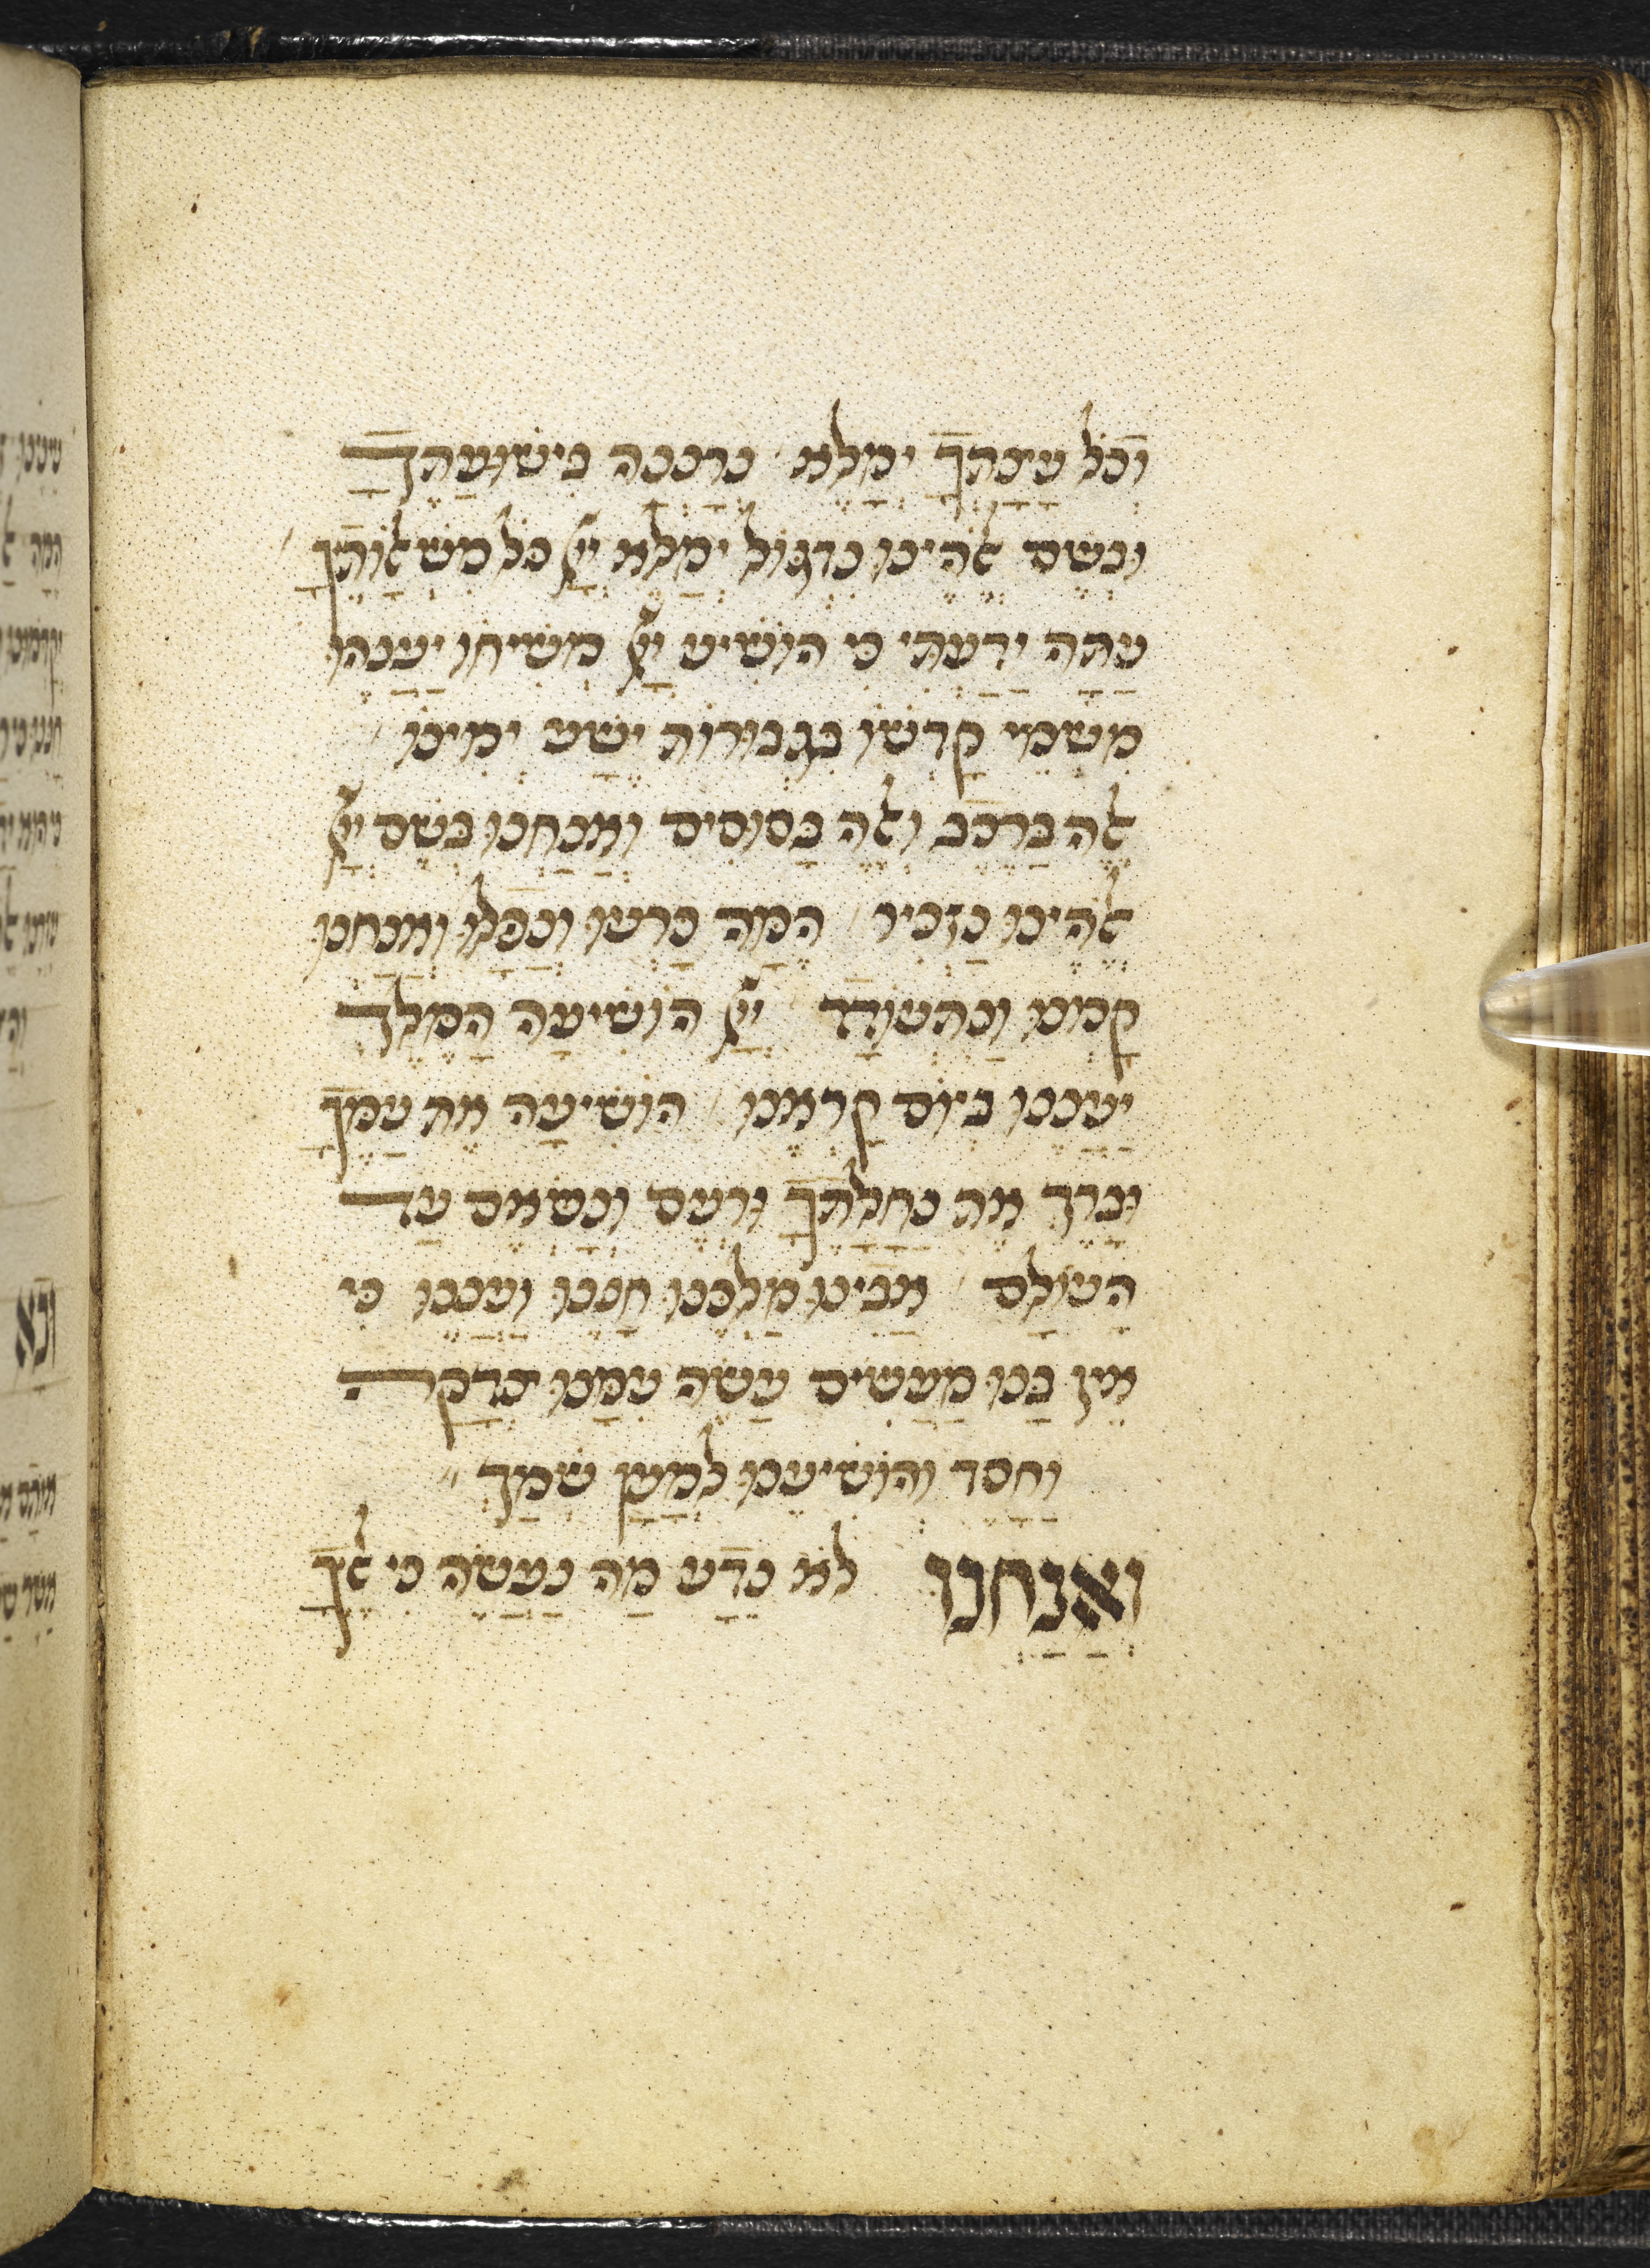 וְכָל עֲצָתְךָ יְמַלֵּא נְרַנְּנָה בִּישׁוּעָתֶךָ
וּבְשֵׁם אֱלֹהֵינוּ נִדְגּוֹל יְמַלֵּא יְיָ כָּל מִשְׁאֲלוֹתֶיךָ
עַתָּה יָדַעְתִּי כִּי הוֹשִׁיעַ יְיָ מְשִׁיחוֹ יַעֲנֵהוּ
מִשְּׁמֵי קָדְשׁוֹ בִּגְבוּרוֹת יֵשַׁע יְמִינוֹ
אֵלֶּה בָרֶכֶב וְאֵלֶּה בַסּוּסִים וַאֲנַחְנוּ בְּשֵׁם יְיָ
אֱלֹהֵינוּ נַזְכִּיר הֵמָּה כָּרְעוּ וְנָפָלוּ וַאֲנַחְנוּ
קַמְנוּ וַנִּתְעוֹדָד יְיָ הוֹשִׁיעָה הַמֶּלֶךְ
יַעֲנֵנוּ בְיוֹם קָרְאֵנוּ הוֹשִׁיעָה אֶת עַמֶּךָ
וּבָרֵךְ אֶת נַחֲלָתֶךָ וּרְעֵם וְנַשְּׂאֵם עַד
הָעוֹלָם אָבִינוּ מַלְכֵּנוּ חָנֵּנוּ וַעֲנֵנוּ כִּי
אֵין בָּנוּ מַעֲשִׂים עֲשֵׂה עִמָּנוּ צְדָקָה
וָחֶסֶד וְהוֹשִׁיעֵנוּ לְמַעַן שְׁמֶךָ
וַאֲנַחְנוּ לֹא נֵדַע מַה נַּעֲשֶׂה כִּי אֵלֶיךָ